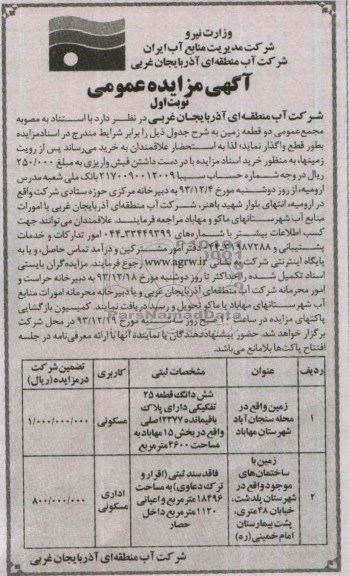 وزارت نیرو
شرکت مدیریت منابع آب ایران
شرکت آب منطقه‌ای آذربایجان غربی
آگهی مزایده عمومی
نوبت اول
شرکت آب منطقه‌ای آذربایجان غربی در نظر دارد با استناد به مصوبه
مجمع عمومی دو قطعه زمین به شرح جدول ذیل را برابر شرایط مندرج در اسناد مزایده
بطور قطع واگذار نماید؛ لذا به استحضار علاقمندان به خرید می‌رساند پس از رویت
زمینها، به منظور خرید اسناد مزایده با در دست داشتن فیش واریزی به مبلغ ۲۵۰/۰۰۰
ریال در وجه شماره حساب سیبا ۲۱۷۰۰۹۰۰۱۲۰۰۹ بانک ملی شعبه مدرس
ارومیه، از روز دوشنبه مورخ ۹۳/۱۲/۴ به دبیرخانه مرکزی حوزه ستادی شرکت واقع
در ارومیه، انتهای بلوار شهید باهنر، شرکت آب منطقه‌ای آذربایجان غربی یا امورات
منابع آب شهرستانهای ماکو و مهاباد مراجعه فرمایند. علاقمندان می توانند جهت
کسب اطلاعات بیشتر با شماره‌های ۰۴۴-۳۳۴۴۹۳۹۹ امور تدارکات و خدمات
پشتیبانی و ۰۴۴-۳۱۹۸۷۲۸۸ دفتر امور مشترکین و درآمد تماس حاصل، و یا به
پایگاه اینترنتی شرکت به نشانی www.agrw.ir رجوع فرمایند. مزایده‌گران بایستی
اسناد تکمیل شده را حداکثر تا روز دوشنبه مورخ ۹۳/۱۲/۱۸ به دبیرخانه حراست و
امور محرمانه شرکت آب منطقه‌ای آذربایجان غربی و یا دبیرخانه محرمانه امورات منابع
آب شهرستانهای مهاباد یا ماکو تحویل و رسید دریافت نمایند. کمیسیون بازگشایی
پاکتهای مزایده در ساعت صبح روز مورخ ۹۳/۱۲/۱۹ در محل شرکت
برگزار خواهد شد. حضور پیشنهاددهندگان یا نماینده آنها با ارائه معرفی‌نامه در جلسه
افتتاح پاکت‌ها بلامانع می‌باشد.
ردیف عنوان مشخصات ثبتی کاربری تضمین شرکت در مزایده (ریال)
۱ زمین واقع در محله سنجان آباد شهرستان مهاباد شش دانگ قطعه ۲۵ تفکیکی دارای پلاک باقیمانده ۱۲۳۷۷ اصلی واقع در بخش ۱۵ مهاباد به مساحت ۲۶۰۰ مترمربع مسکونی ۱/۰۰۰/۰۰۰/۰۰۰
۲ زمین با ساختمان‌های موجود واقع در شهرستان پلدشت، خیابان ۲۸ متری، پشت بیمارستان امام خمینی (ره) فاقد سند ثبتی (اقرار و ترک دعاوی) به مساحت ۱۸۴۹۶ مترمربع و اعیانی ۱۱۲۰ مترمربع داخل حصار اداری مسکونی ۸۰۰/۰۰۰/۰۰۰
شرکت آب منطقه‌ای آذربایجان غربی